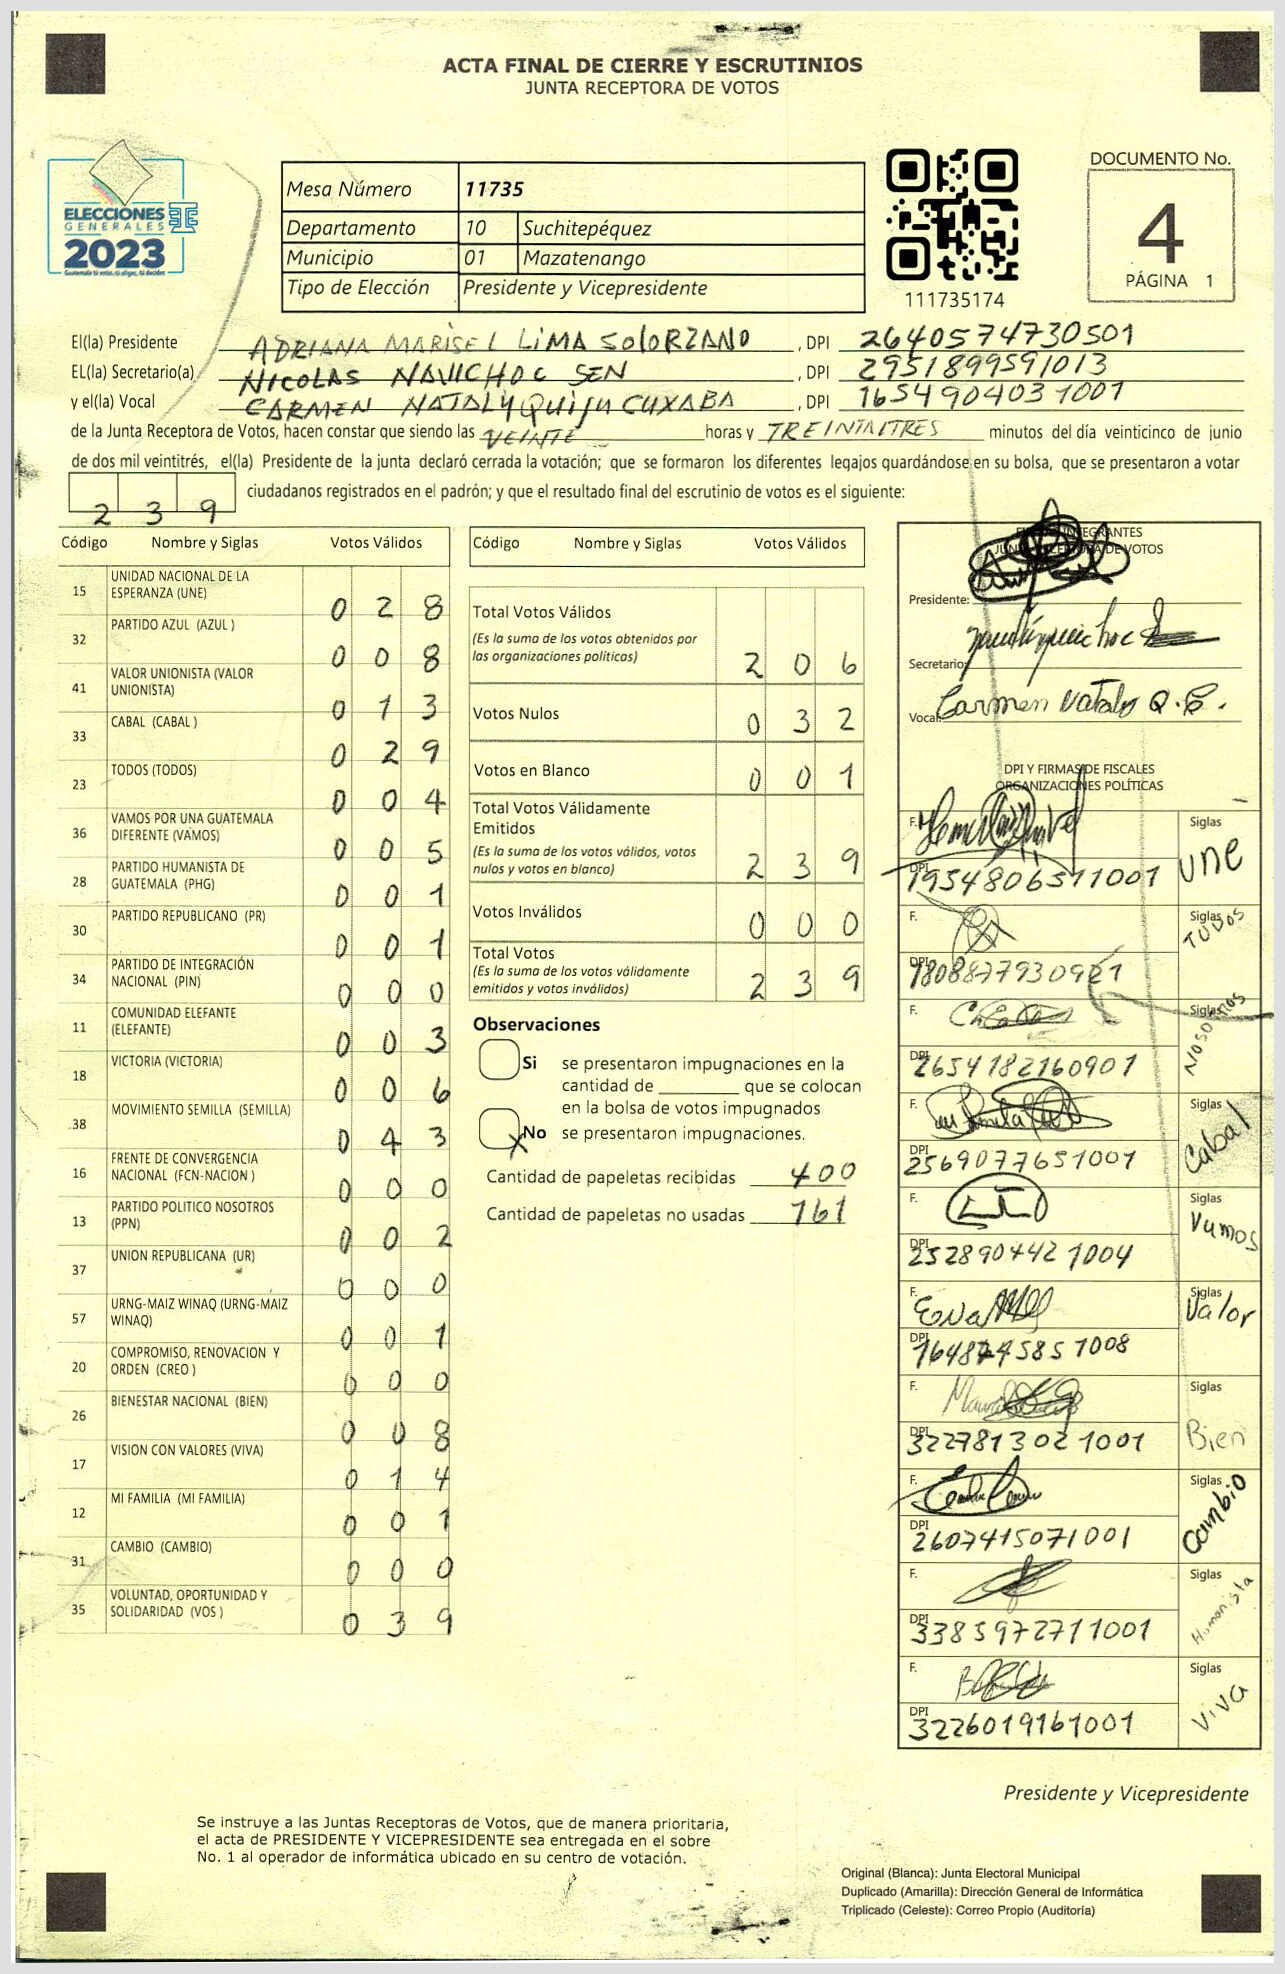 ACTA FINAL DE CIERRE Y ESCRUTINIOS
JUNTA RECEPTORA DE VOTOS
ELECCIONES
GENERALES
2023
Guatemala tú votas, tú eliges, tú decides
Mesa Número 11735
Departamento 10 Suchitepéquez
Municipio 01 Mazatenango
Tipo de Elección Presidente y Vicepresidente
111735174
DOCUMENTO No.
4
PÁGINA 1
El(la) Presidente ADRIANA MARISEL LIMA SOLORZANO, DPI 2640574730501
EL(la) Secretario(a) NICOLAS NAVICHOC SEN, DPI 2951899591013
y el(la) Vocal CARMEN NATALY QUIJU CUXABA, DPI 1654904031001
de la Junta Receptora de Votos, hacen constar que siendo las VEINTE horas y TREINTAITRES minutos del día veinticinco de junio
de dos mil veintitrés, el(la) Presidente de la junta declaró cerrada la votación; que se formaron los diferentes legajos guardándose en su bolsa, que se presentaron a votar
239 ciudadanos registrados en el padrón; y que el resultado final del escrutinio de votos es el siguiente:
Código Nombre y Siglas Votos Válidos
15 UNIDAD NACIONAL DE LA ESPERANZA (UNE) 028
32 PARTIDO AZUL (AZUL ) 008
41 VALOR UNIONISTA (VALOR UNIONISTA) 013
33 CABAL (CABAL ) 029
23 TODOS (TODOS) 004
36 VAMOS POR UNA GUATEMALA DIFERENTE (VAMOS) 005
28 PARTIDO HUMANISTA DE GUATEMALA (PHG) 001
30 PARTIDO REPUBLICANO (PR) 001
34 PARTIDO DE INTEGRACIÓN NACIONAL (PIN) 000
11 COMUNIDAD ELEFANTE (ELEFANTE) 003
18 VICTORIA (VICTORIA) 006
38 MOVIMIENTO SEMILLA (SEMILLA) 043
16 FRENTE DE CONVERGENCIA NACIONAL (FCN-NACION ) 000
13 PARTIDO POLITICO NOSOTROS (PPN) 002
37 UNION REPUBLICANA (UR) 000
57 URNG-MAIZ WINAQ (URNG-MAIZ WINAQ) 001
20 COMPROMISO, RENOVACION Y ORDEN (CREO ) 000
26 BIENESTAR NACIONAL (BIEN) 008
17 VISION CON VALORES (VIVA) 014
12 MI FAMILIA (MI FAMILIA) 001
31 CAMBIO (CAMBIO) 000
35 VOLUNTAD, OPORTUNIDAD Y SOLIDARIDAD (VOS ) 039
Código Nombre y Siglas Votos Válidos
Total Votos Válidos
(Es la suma de los votos obtenidos por
las organizaciones políticas) 206
Votos Nulos 032
Votos en Blanco 001
Total Votos Válidamente
Emitidos
(Es la suma de los votos válidos, votos
nulos y votos en blanco) 239
Votos Inválidos 000
Total Votos
(Es la suma de los votos válidamente
emitidos y votos inválidos) 239
Observaciones
Si se presentaron impugnaciones en la
cantidad de ________ que se colocan
en la bolsa de votos impugnados
X No se presentaron impugnaciones.
Cantidad de papeletas recibidas 400
Cantidad de papeletas no usadas 161
INTEGRANTES
JUNTA RECEPTORA DE VOTOS
Presidente:
Secretario:
Vocal: Carmen Nataly Q.C.
DPI Y FIRMAS DE FISCALES
ORGANIZACIONES POLÍTICAS
F. Siglas une
DPI 1954806511001
F. Siglas TODOS
DPI
F. Siglas NOSOTROS
DPI 2654182160901
F. Siglas Cabal
DPI 2569077651001
F. Siglas Vamos
DPI 2528904421004
F. Siglas Valor
DPI
F. Siglas Bien
DPI 3227813021001
F. Siglas Cambio
DPI 2607415071001
F. Siglas Humanista
DPI 3385972711001
F. Siglas VIVA
DPI 3226019161001
Presidente y Vicepresidente
Se instruye a las Juntas Receptoras de Votos, que de manera prioritaria,
el acta de PRESIDENTE Y VICEPRESIDENTE sea entregada en el sobre
No. 1 al operador de informática ubicado en su centro de votación.
Original (Blanca): Junta Electoral Municipal
Duplicado (Amarilla): Dirección General de Informática
Triplicado (Celeste): Correo Propio (Auditoría)